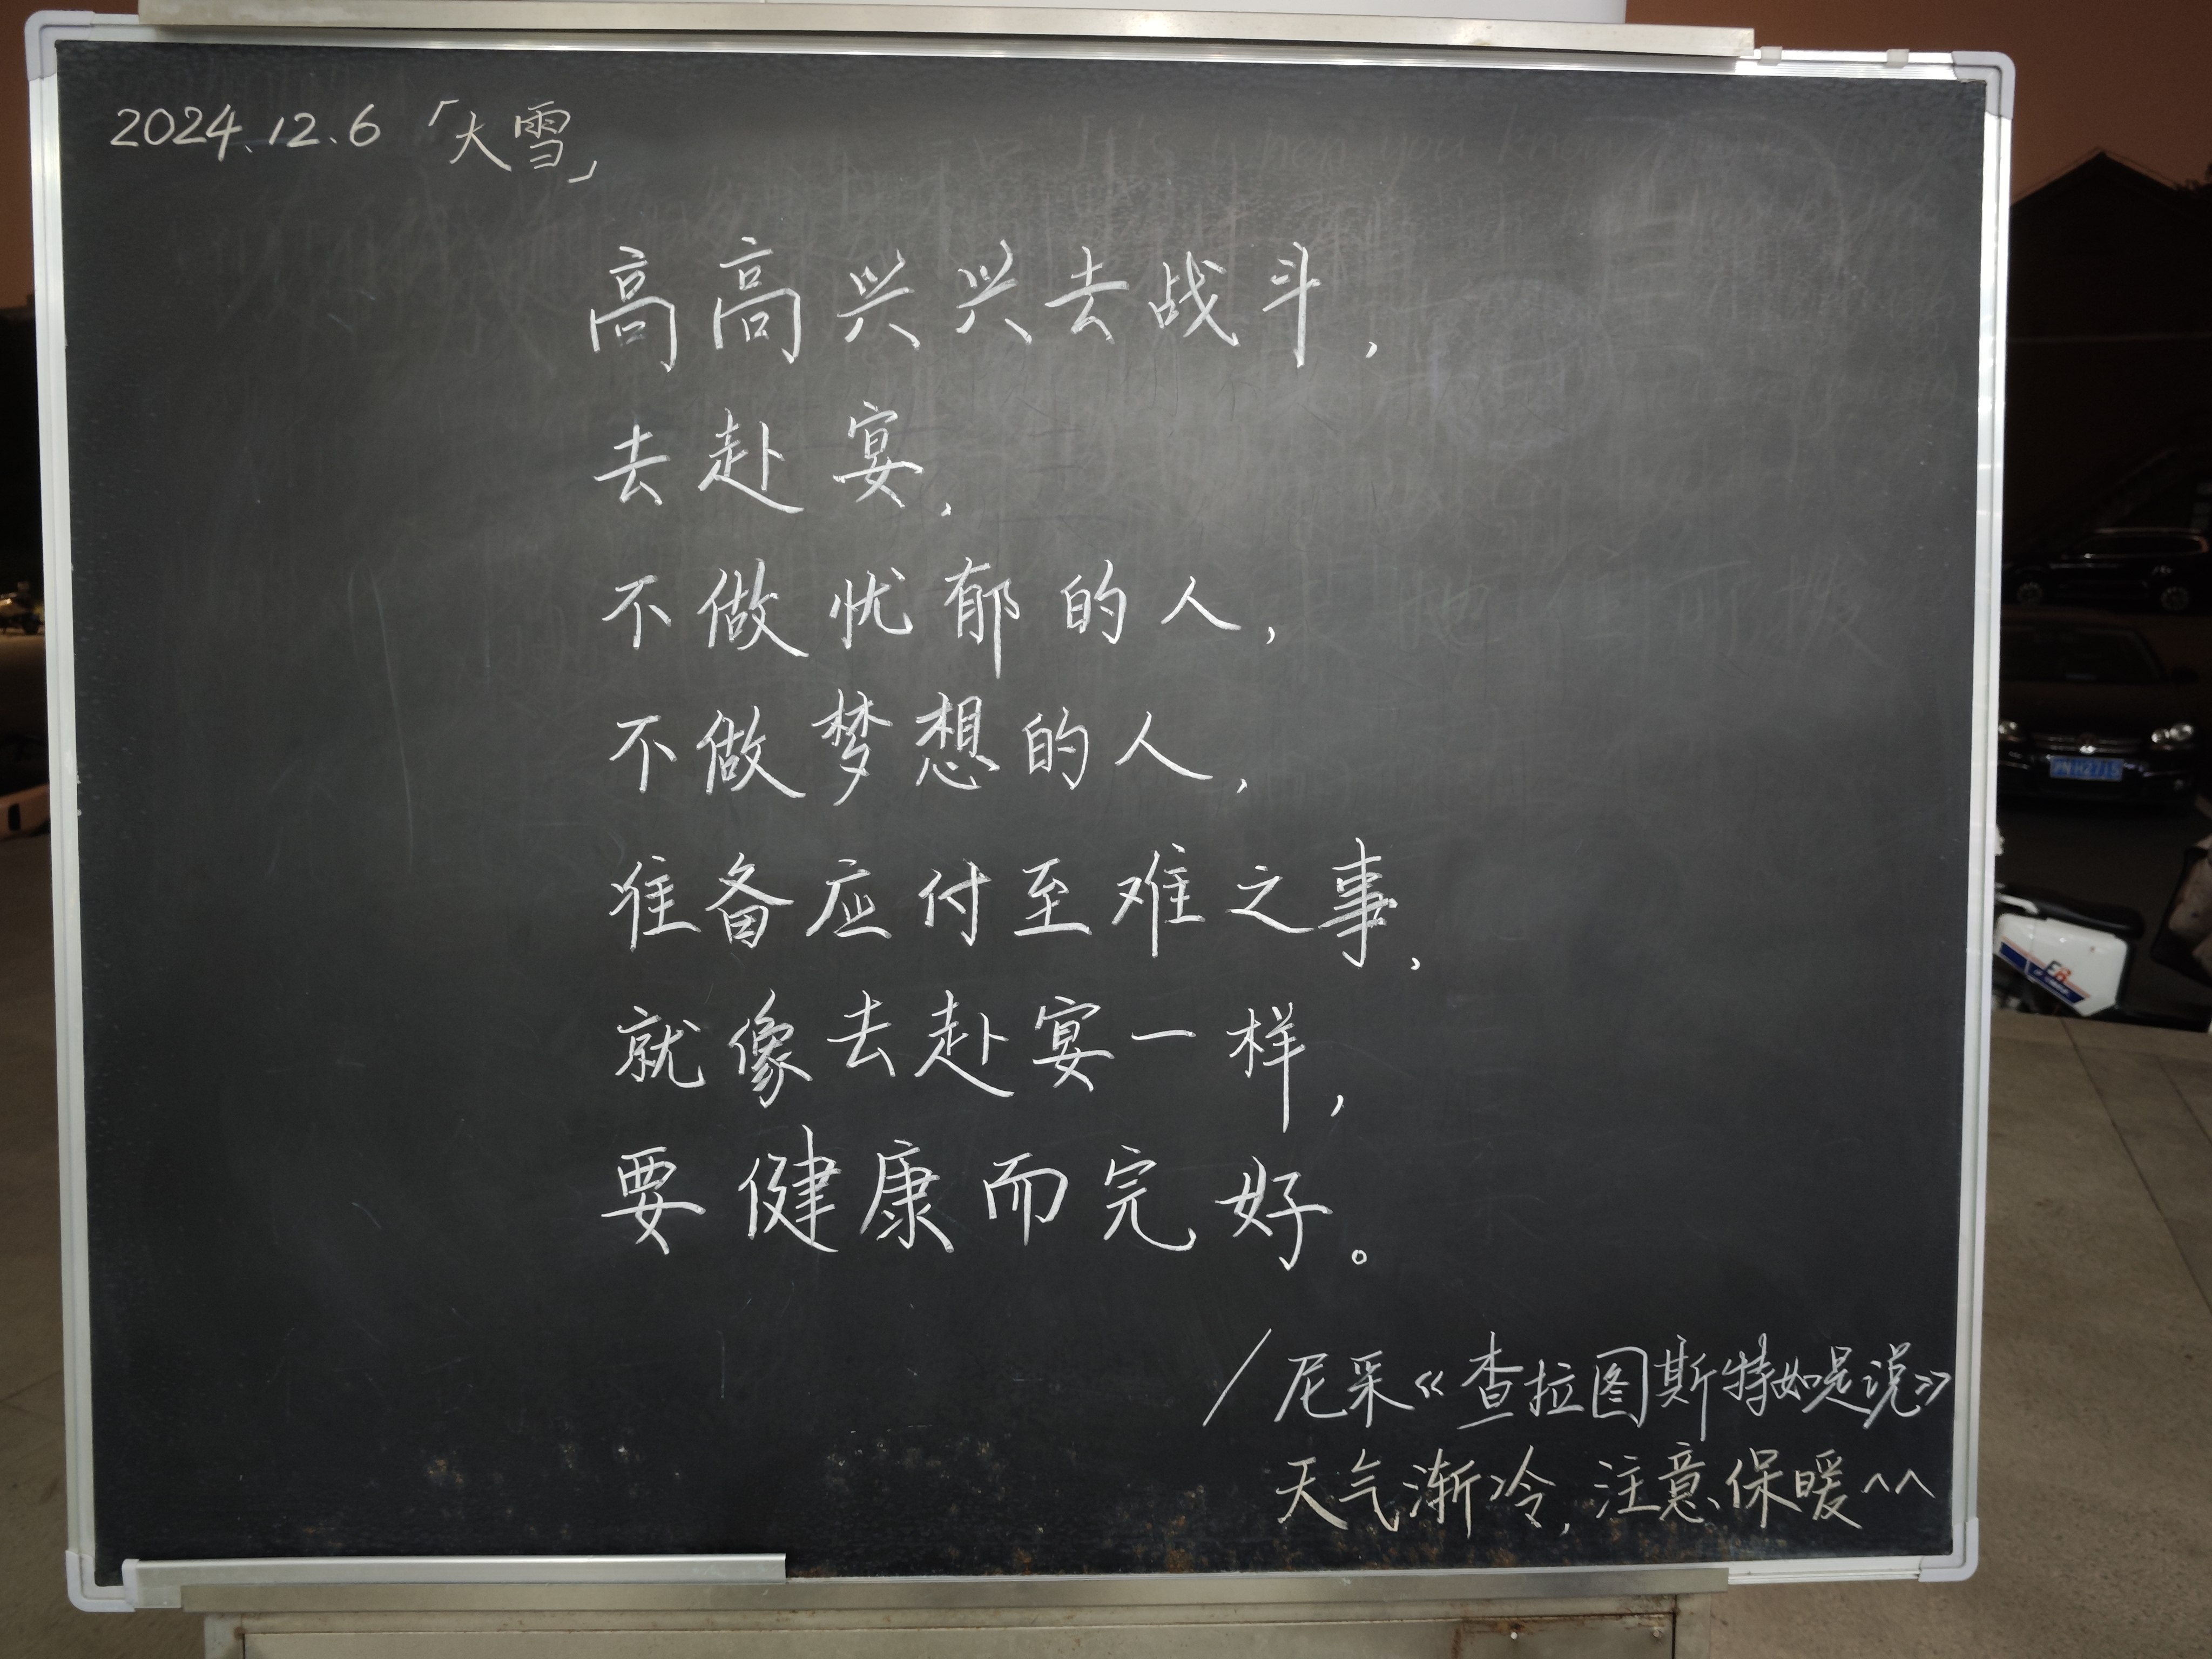 2024.12.6「大雪」
高高兴兴去战斗，
去赴宴，
不做忧郁的人，
不做梦想的人，
准备应付至难之事，
就像去赴宴一样，
要健康而完好。
/尼采《查拉图斯特如是说》
天气渐冷，注意保暖^^